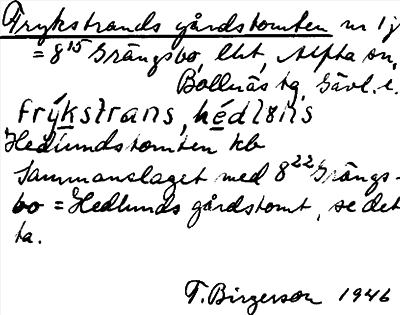 Frykstrands gårdstomten nr 1j
= 8¹⁵ Grängsbo, lht, Alfta sn,
Bollnäs tg, Gävl. l.
frykstrans, hédlɵns
Hedlundstomten kb
Sammanslaget med 8²² Grängs-
bo = Hedlunds gårdstomt, se det-
ta.
T. Birgerson 1946